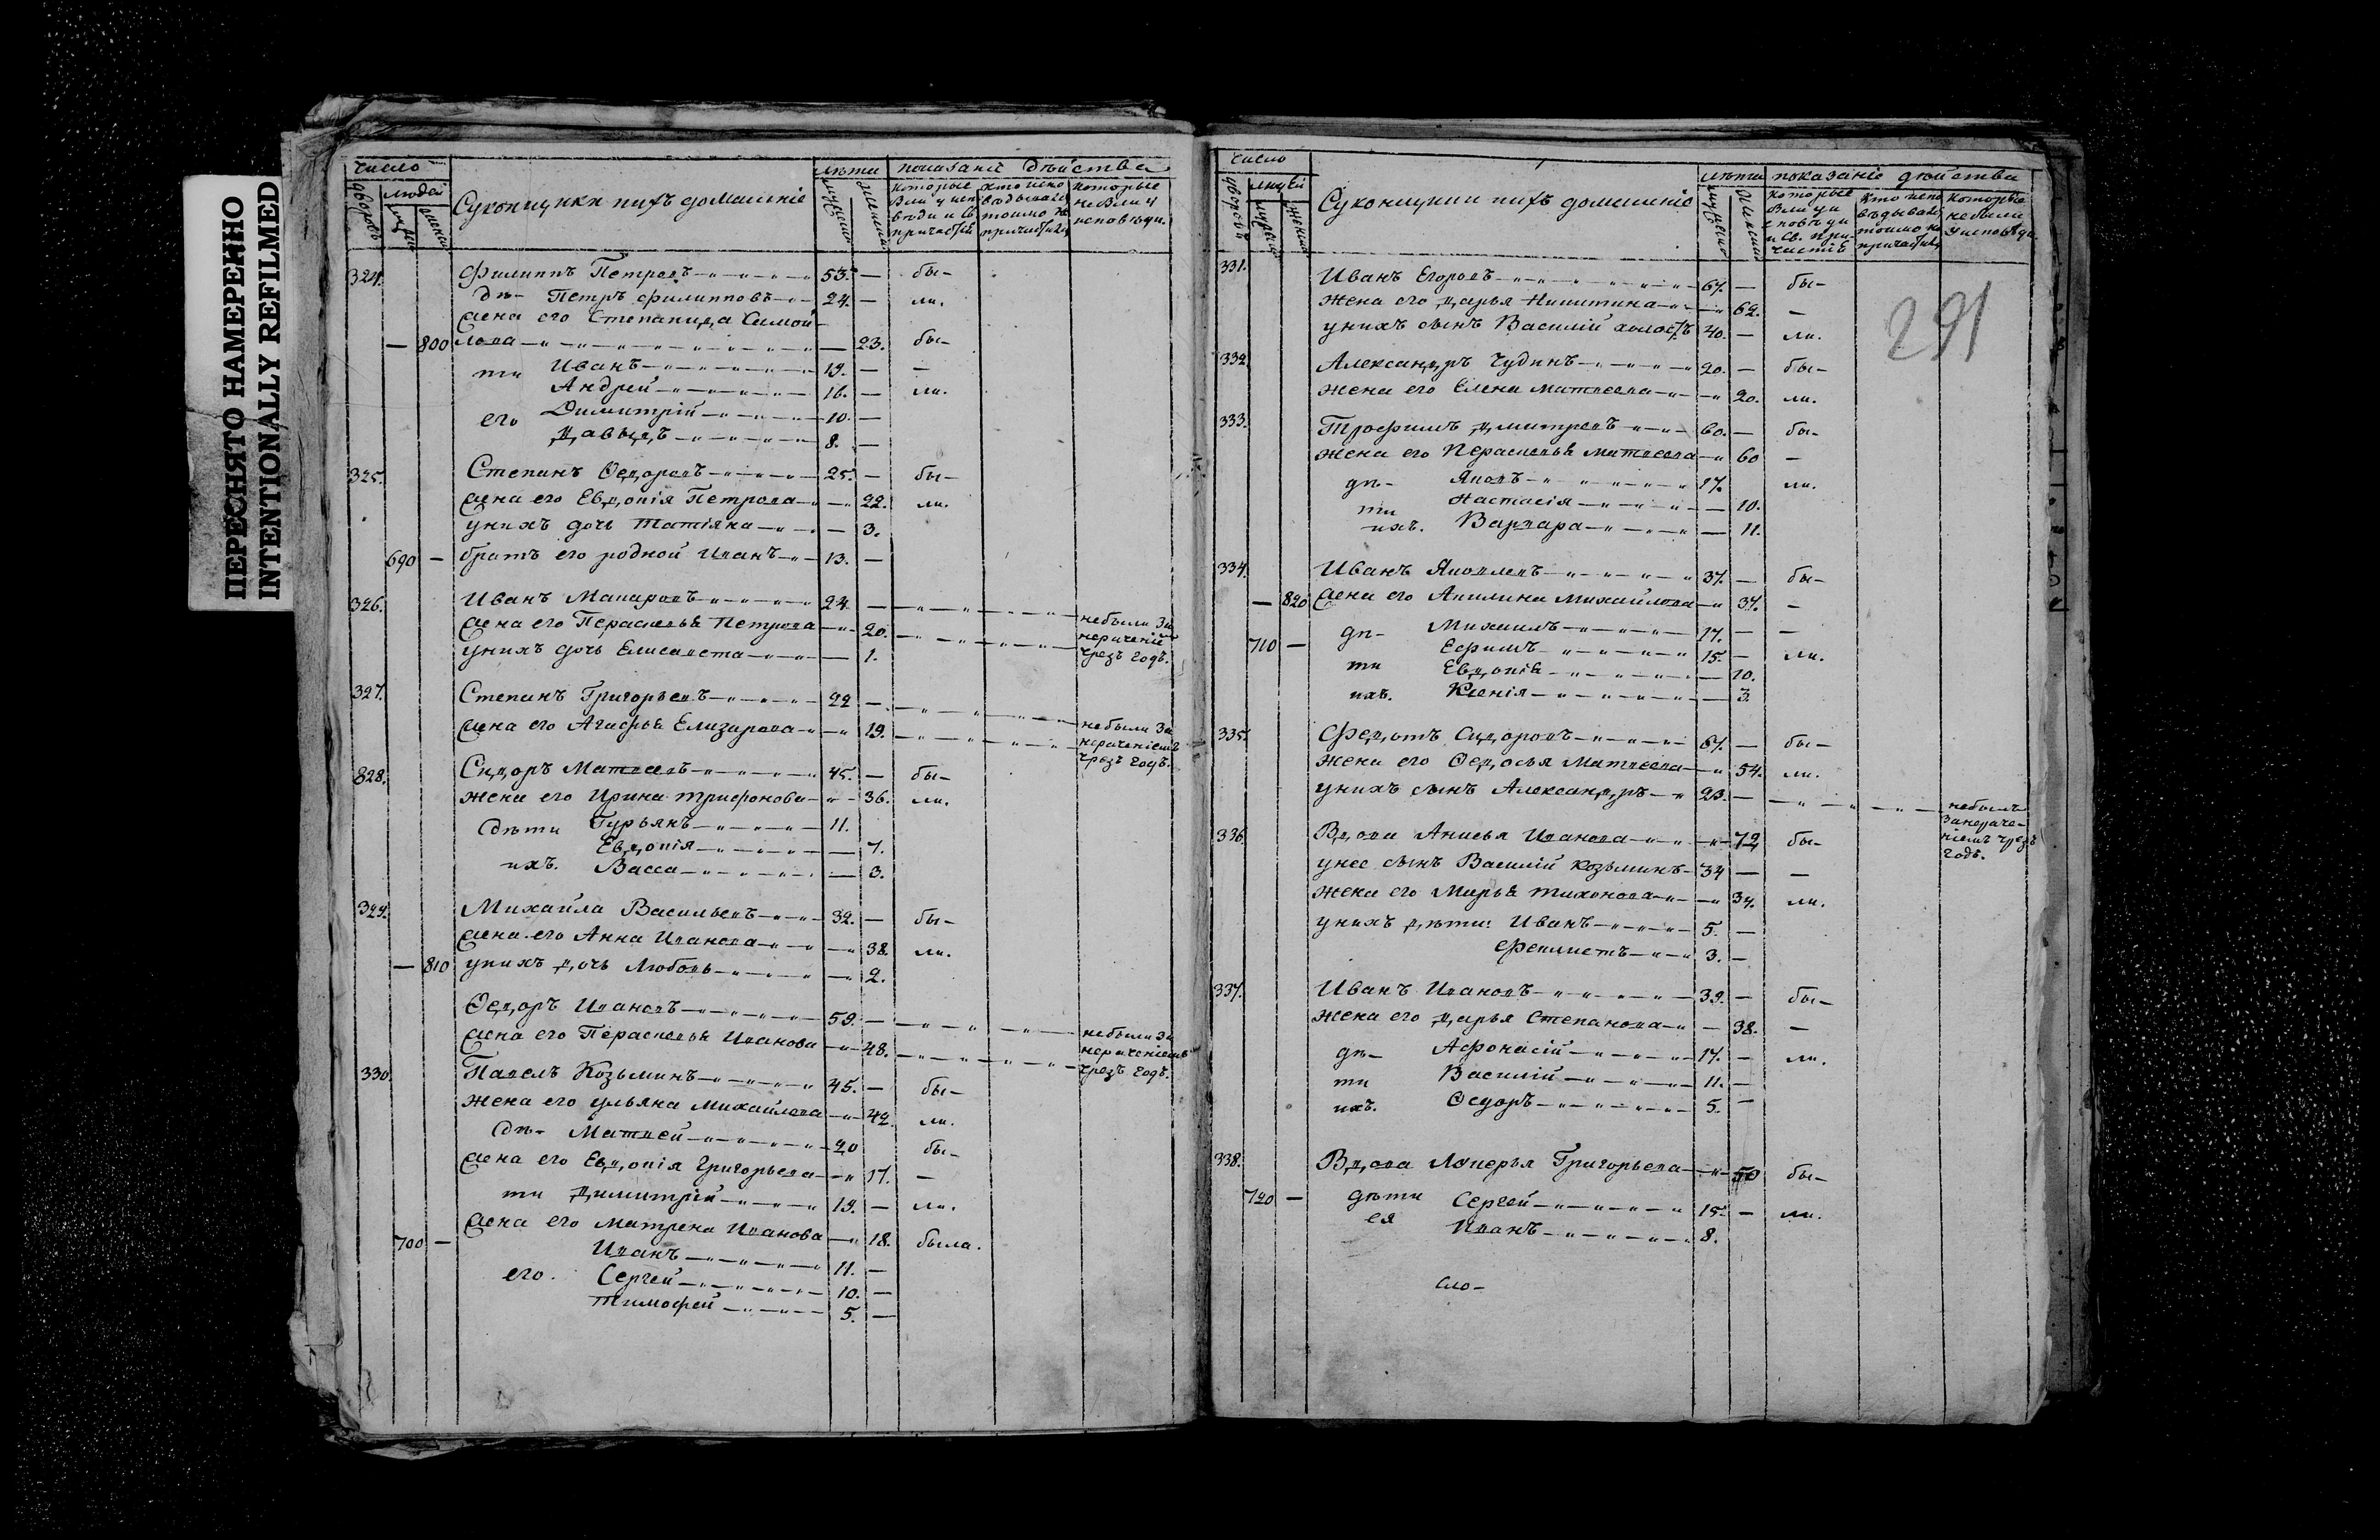 ПЕРЕСНЯТО НАМЕРЕННО
INTENTIONALLY REFILMED
число лѣта показанiе дѣйства
дворовъ людей мужес женск Суконщики и ихъ домашнiе мужеска женска которые были у исповѣди и Св. причастiя кто исповѣдывался токмо не причастился которые не были у исповѣди.
324. Филиппъ Петровъ 53. — бы-
дѣ- Петръ Филипповъ 24. — ли.
жена его Степанида Самой-
— 800 лова — 23. бы-
ти Иванъ 19. — —
Андрей 16. — ли.
его Димитрiй 10. —
Давыдъ 8. —
325. Степанъ Ѳедоровъ 25. — бы-
жена его Евдокiя Петрова — 22. ли.
у нихъ дочь Татiяна — 3.
690 — братъ его родной Иванъ 13. —
326. Иванъ Макаровъ 24 — не были за
жена его Парасковья Петрова — 20. нераченiе
у нихъ дочь Елисавета — 1. чрезъ годъ.
327. Степанъ Григорьевъ 22 —
жена его Агафья Елизарова — 19. не были за
нераченiемъ
чрезъ годъ.
328. Сидоръ Матвеевъ 45. — бы-
жена его Ирина Трифонова — 36. ли.
дѣти Гурьянъ 11.
Евдокiя — 7.
ихъ. Васса — 3.
329. Михайла Васильевъ 32. — бы-
жена его Анна Иванова — 38. ли.
— 810 у нихъ дочь Любовь — 2.
Ѳедоръ Ивановъ 59. — не были за
жена его Парасковья Иванова — 48. нераченiемъ
чрезъ годъ.
330. Павелъ Козьминъ 45. — бы-
жена его Ульяна Михайлова — 42. ли.
дѣ- Матвей 20 бы-
жена его Евдокiя Григорьева — 17. —
ти Димитрiй 19. — ли.
жена его Матрена Иванова — 18. была.
700 — Иванъ 11. —
его. Сергей 10. —
Тимофей 5. —
число лѣта показанiе дѣйства
дворовъ людей мужеска женска Суконщики и ихъ домашнiе мужеска женска которые были у исповѣди и Св. причастiя кто исповѣдывался токмо не причастился которые не были у исповѣди.
291
331. Иванъ Егоровъ 67. — бы-
жена его Дарья Никитина — 62. —
у нихъ сынъ Василiй холостъ 40. — ли.
332 Александръ Чудинъ 20. — бы-
жена его Елена Матвеева — 20. ли.
333. Трофимъ Дмитревъ 60. — бы-
жена его Парасковья Матвеева — 60 —
дѣ- Яковъ 17. ли.
ти Настасiя — 10.
ихъ. Варвара — 11.
334. Иванъ Яковлевъ 37. — бы-
— 820 жена его Акилина Михайлова — 37. —
дѣ- Михаилъ 17. — —
710 — Ефимъ 15. — ли.
ти Евдокiя — 10.
ихъ. Ксенiя — 3.
335. Федотъ Сидоровъ 67. — бы-
жена его Ѳедосья Матвеева — 54. ли.
у нихъ сынъ Александръ 23. — не былъ
за нераче-
нiемъ чрезъ
годъ.
336. Вдова Анисья Иванова — 72 бы-
у нее сынъ Василiй Козьминъ 34 — —
жена его Марья Тихонова — 34. ли.
у нихъ дѣти: Иванъ 5. —
3. —
337. Иванъ Ивановъ 39. — бы-
жена его Дарья Степанова — 38. —
дѣ- Афонасiй 17. — ли.
ти Василiй 11. —
ихъ. Ѳедоръ 5. —
338. Вдова Лукерья Григорьева — 50 бы-
720 — дѣти Сергей 15. — ли.
ея Иванъ 8.
сло-